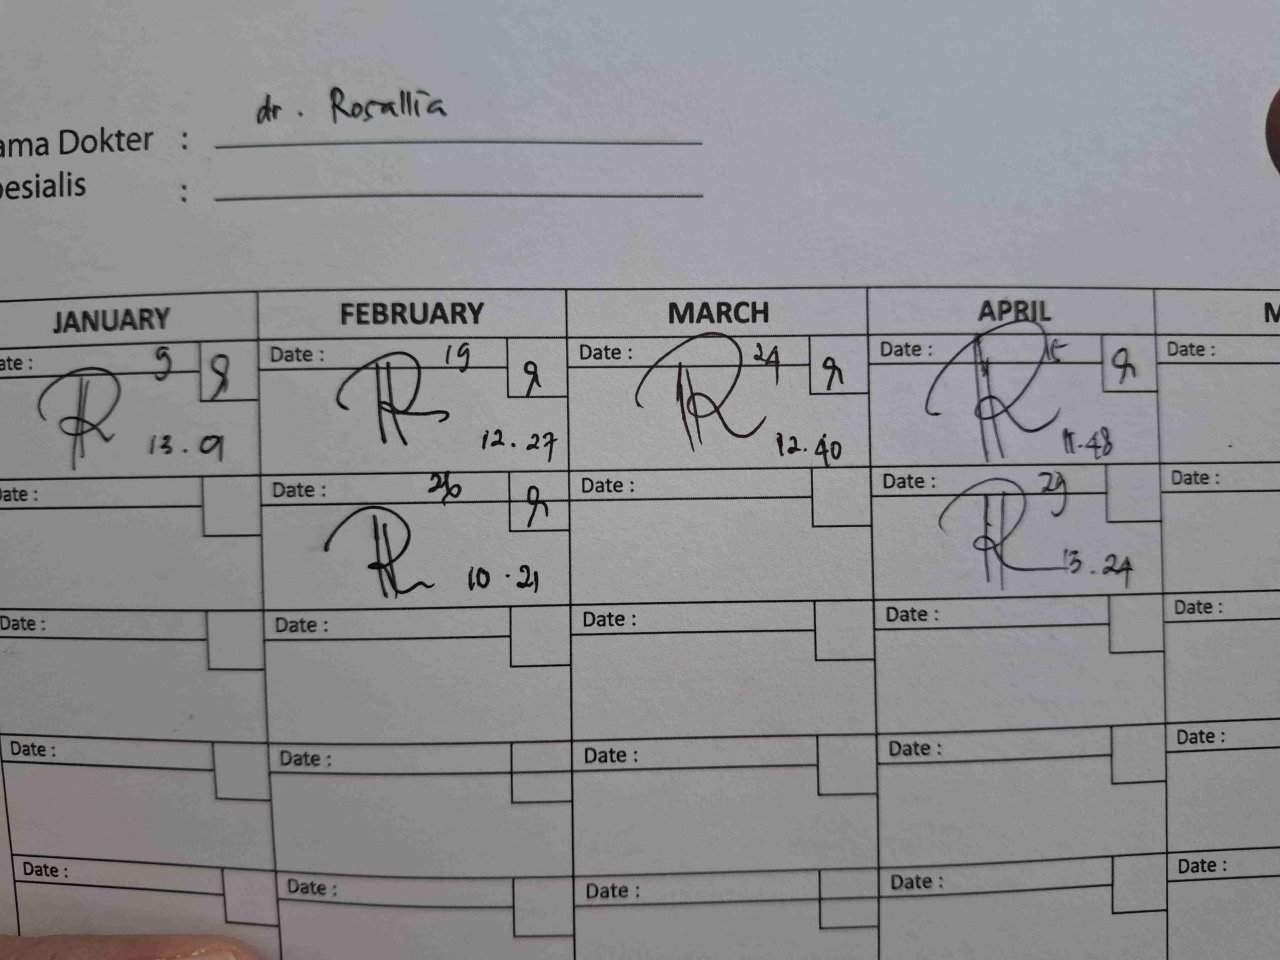 dr. Rosallia
ama Dokter :
pesialis :
JANUARY FEBRUARY MARCH APRIL M
ate : 9 Date : 19 Date : 24 Date : 15 Date :
13.9 12.27 12.40 11.48
Date : Date : 26 Date : Date : 29 Date :
10.21 13.24
Date : Date : Date : Date : Date :
Date : Date : Date : Date : Date :
Date : Date : Date : Date : Date :